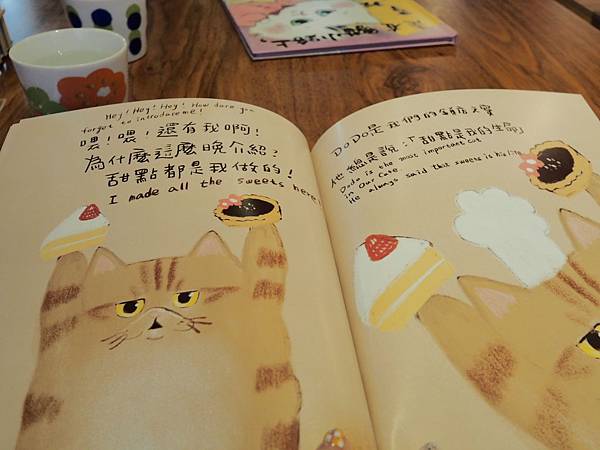 Hey! Hey! Hey! How dare you
forget to introduce me!
喂!喂,還有我啊!
為什麼這麼晚介紹?
甜點都是我做的!
I made all the sweets here!
DoDo是我們的鎮店之寶
他總是說:「甜點是我的生命」
Dodo is the most important cat
in Our Cafe.
He always said that sweets is his life